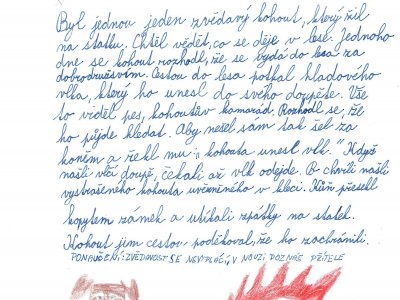 Byl jednou jeden zvědavý kohout, který žil
na statku. Chtěl vědět, co se děje v lese. Jednoho
dne se kohout rozhodl, že se vydá do lesa za
dobrodružstvím. Cestou do lesa potkal hladového
vlka, který ho unesl do svého doupěte. Vše
to viděl pes, kohoutův kamarád. Rozhodl se, že
ho půjde hledat. Aby nešel sám tak šel za
koněm a řekl mu: „kohouta unesl vlk." Když
našli vlčí doupě, čekali až vlk odejde. Po chvíli našli
vystrašeného kohouta uvězněného v kleci. Kůň přesekl
kopytem zámek a utíkali zpátky na statek.
Kohout jim cestou poděkoval, že ho zachránili.
PONAUČENÍ: ZVĚDAVOST SE NEVYPLÁCÍ, V NOUZI POZNÁŠ PŘÍTELE